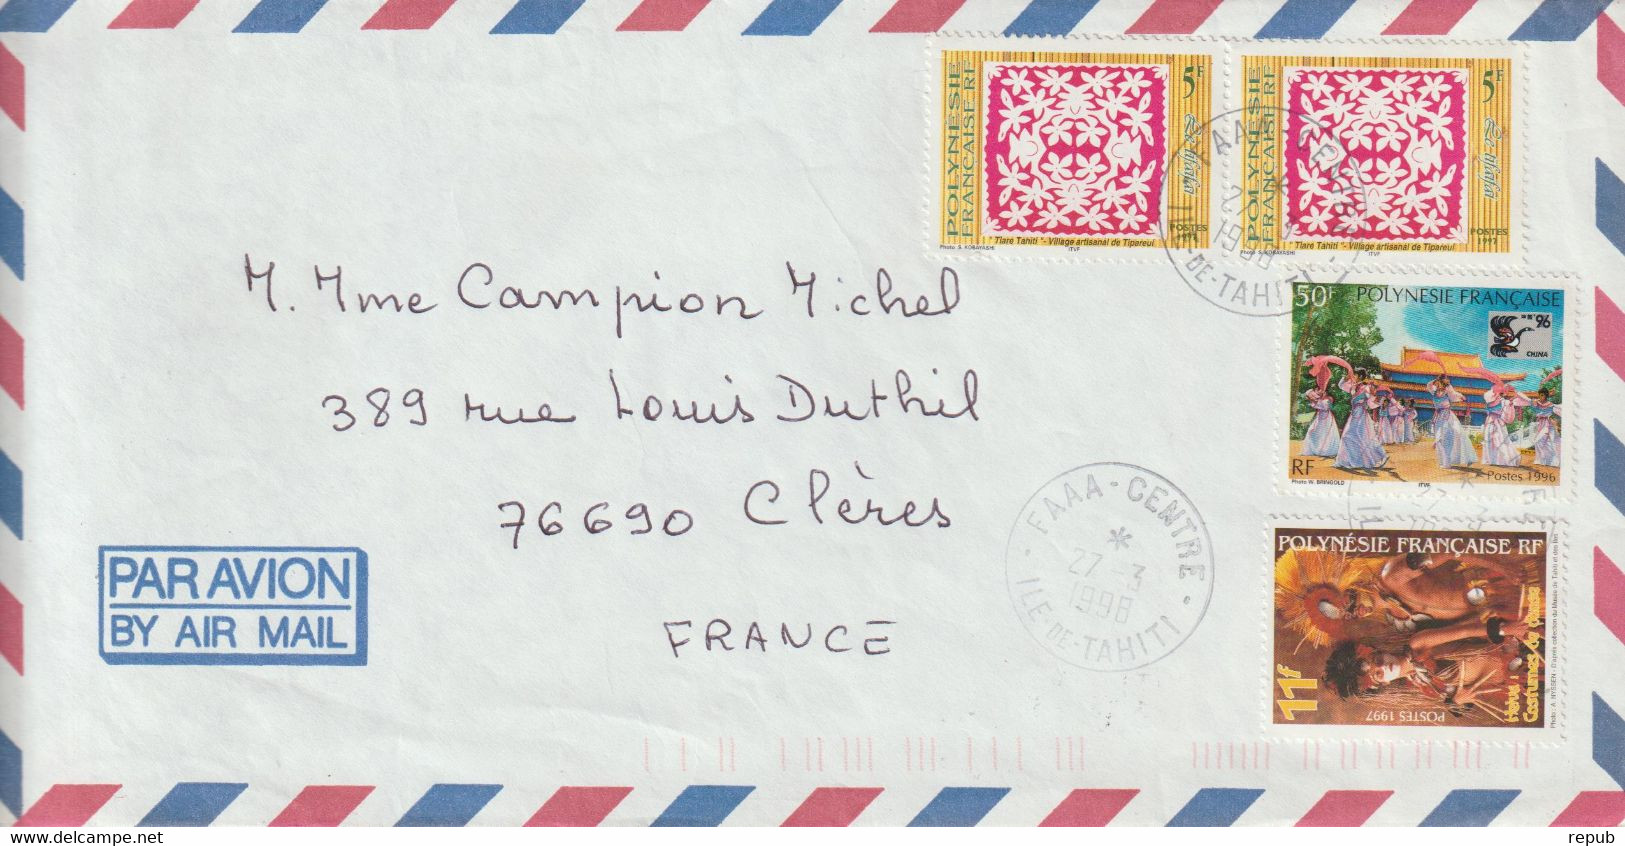 POLYNÉSIE
FRANÇAISE RF
5F
Le tifaifai
POSTES
1997
"Tiare Tahiti" - Village artisanal de Tipareui
Photo S. KOBAYASHI
ITVF
POLYNÉSIE
FRANÇAISE RF
5F
Le tifaifai
POSTES
1997
"Tiare Tahiti" - Village artisanal de Tipareui
Photo S. KOBAYASHI
ITVF
FAAA-CENTRE
27-3
1998
ILE-DE-TAHITI
50F POLYNÉSIE FRANÇAISE
'96
CHINA
RF
Postes 1996
Photo W. BRINGOLD
ITVF
M. Mme Campion Michel
389 rue Louis Duthil
76690 Clères
FRANCE
FAAA-CENTRE
*
27-3
1998
ILE-DE-TAHITI
POLYNÉSIE FRANÇAISE RF
11F
Heiva :
Costumes de danse
POSTES 1997
Photo : A. NYSSEN - D'après collection du Musée de Tahiti et des Iles
PAR AVION
BY AIR MAIL
www.delcampe.net
repub